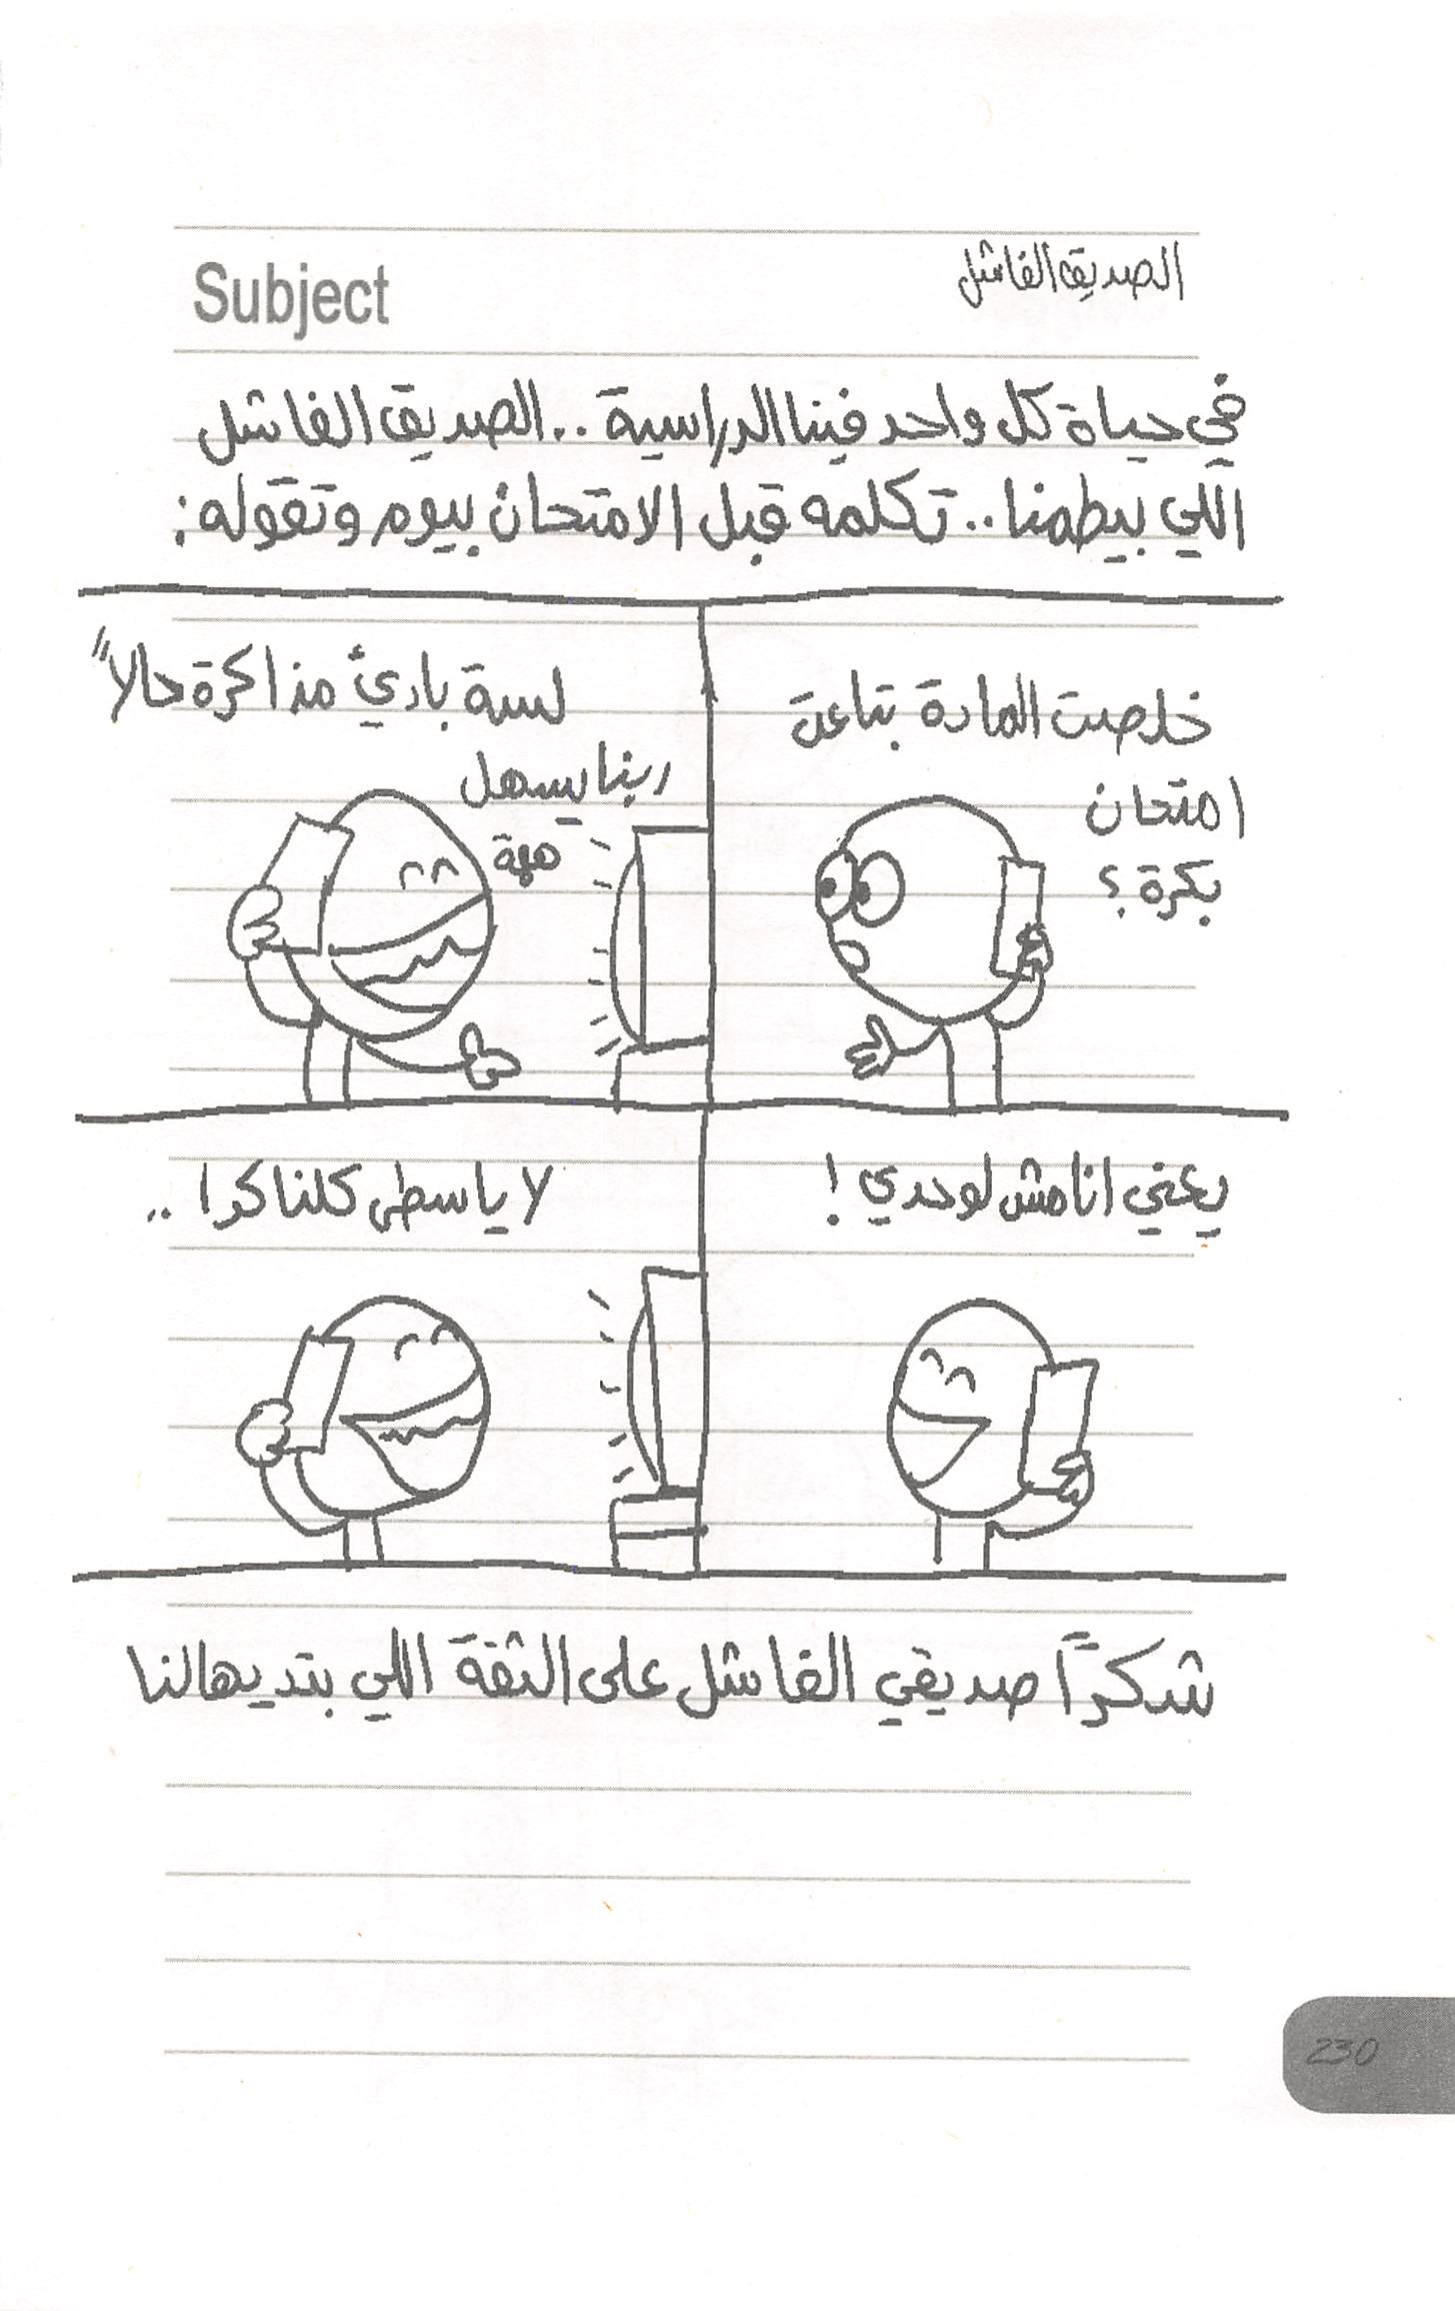 الصديق الفاشل
Subject
في حياة كل واحد فينا الدراسية .. الصديق الفاشل
اللي بيطمنا .. تكلمه قبل الامتحان بيوم وتقوله :
خلصت المادة بتاعت
امتحان
بكرة ؟
لسة بادئ مذاكرة حالاً
ربنا يسهل
ههه
يعني انا مش لوحدي !
لا ياسطى كلنا كدا ..
شكراً صديقي الفاشل على الثقة اللي بتديهالنا
230